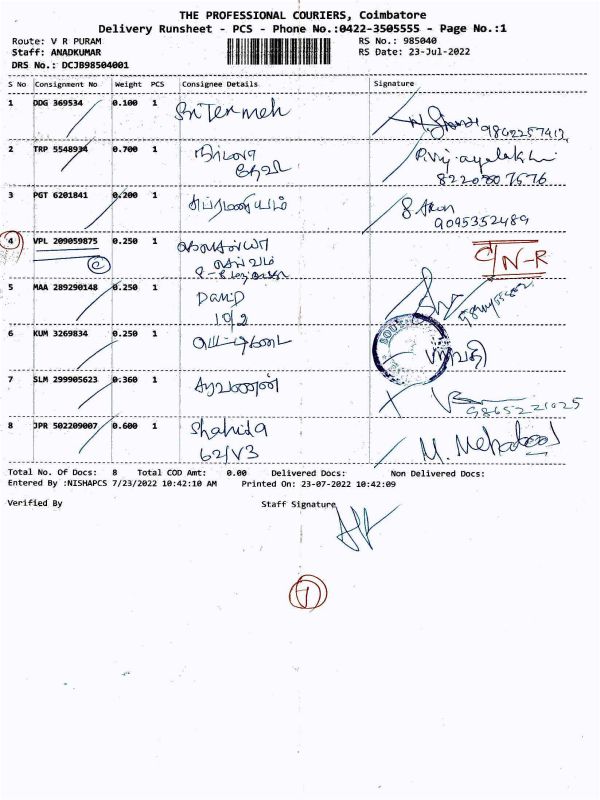 THE PROFESSIONAL COURIERS, Coimbatore
Delivery Runsheet - PCS - Phone No.:0422-3505555 - Page No.:1
Route: V R PURAM RS No.: 985040
Staff: ANADKUMAR RS Date: 23-Jul-2022
DRS No.: DCJB98504001
S No Consignment No Weight PCS Consignee Details Signature
1 DDG 369534 0.100 1
2 TRP 5548934 0.700 1 நிர்மலா
தேவி
8220807576
3 PGT 6201841 0.200 1 சுப்ரமணியம்
9095352489
4 VPL 209059875 0.250 1
செல்வம்
N-R
5 MAA 289290148 0.250 1 David
19/2
6 KUM 3269834 0.250 1
7 SLM 299905623 0:360 1 சரவணன்
9865221025
8 JPR 502209007 0.600 1 Shahida
62/V3
Total No. Of Docs: 8 Total COD Amt: 0.00 Delivered Docs: Non Delivered Docs:
Entered By :NISHAPCS 7/23/2022 10:42:10 AM Printed On: 23-07-2022 10:42:09
Verified By Staff Signature
7